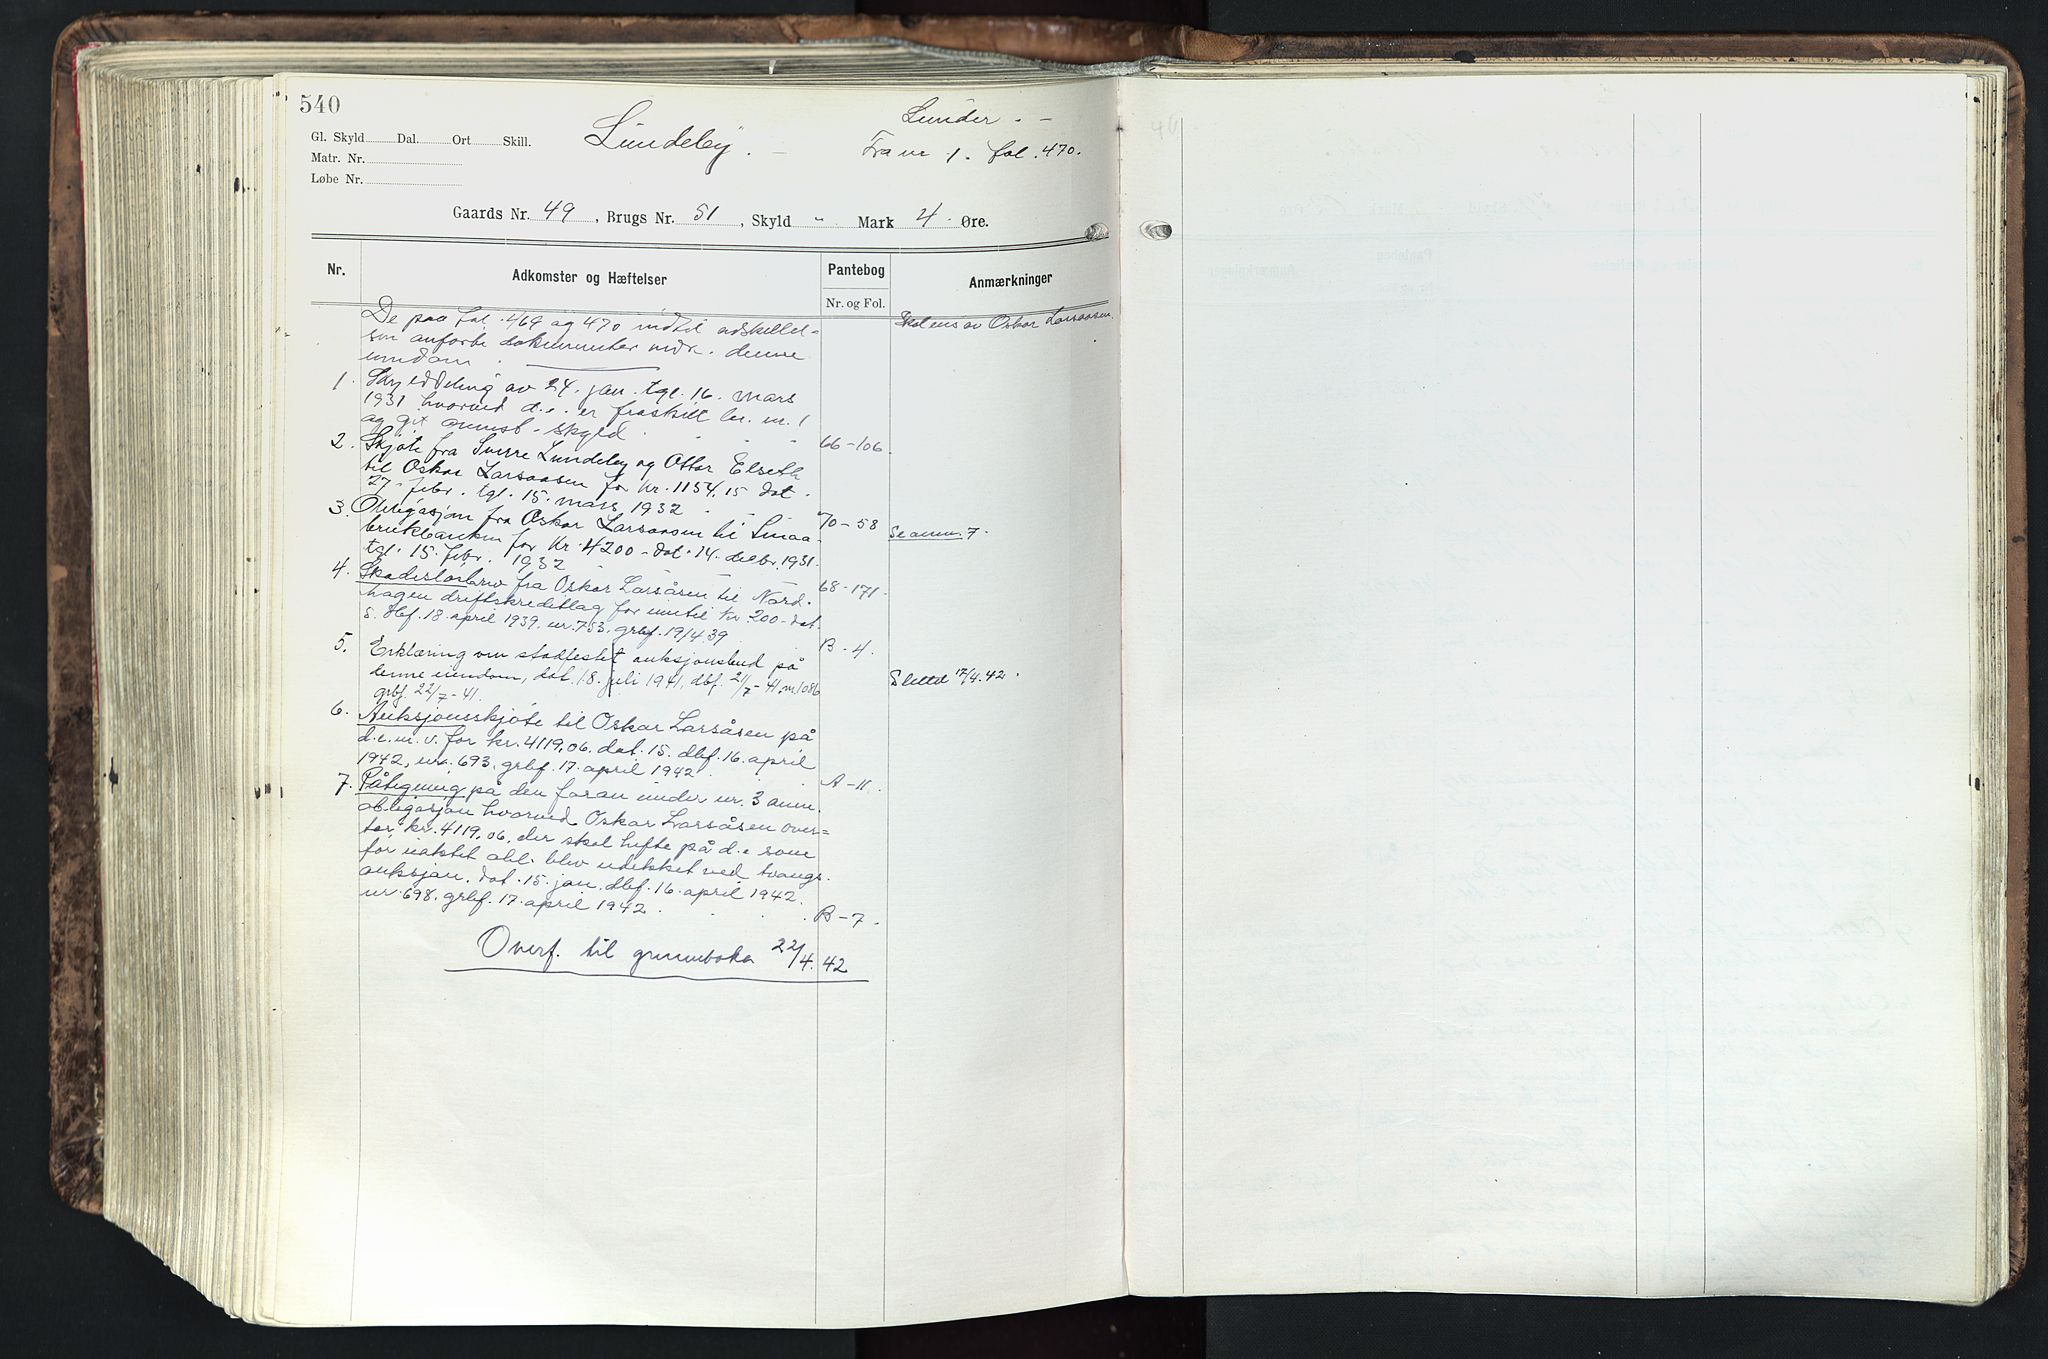 540
Gl. Skyld Dal. Ort Skill.
Matr. Nr.
Løbe Nr.
Lundeby. -
Lunder. -
Fra nr 1. fol. 470.
Gaards Nr. 49, Brugs Nr. 51, Skyld " Mark 4 Øre.
Nr.
Adkomster og Hæftelser
Pantebog
Nr. og Fol.
Anmærkninger
De paa fol. 469 og 470 indtil adskillel-
sen anførte dokumenter vedr. denne
eiendom.
Skal eies av Oskar Larsaasen.
1. Skylddeling av 24. jan. tgl. 16. mars
1931 hvorved d.e. er fraskilt br. nr. 1
og git ovennst. skyld 66-106
2. Skjøte fra Sverre Lundeby og Ottar Elseth
til Oskar Larsaasen for kr. 1154,15 dat.
27. febr. tgl. 15. mars 1932 70-58
3. Obligasjon fra Oskar Larsaasen til Smaa-
brukbanken for kr. 4200 - dat. 14. decbr. 1931.
tgl. 15. febr. 1932 68-171.
Se anm. 7.
4. Skadesløsbrev fra Oskar Larsåsen til Nord-
hagen driftskreditlag for inntil kr. 200 - dat.
s. dbf. 18. april 1939. nr. 753. grbf. 19/4.39 B-4.
5. Erklæring om stadfestet auksjonsbud på
denne eiendom, dat. 18. juli 1941, dbf. 21/7-41. nr. 1086
grbf. 22/7-41.
Slettet 17/4.42.
6. Auksjonsskjøte til Oskar Larsåsen på
d.e. m. v. for kr. 4119,06. dat. 15. dbf. 16. april
1942, nr. 693, grbf. 17. april 1942. A-11.
7. Påtegning på den foran under nr. 3 anm.
obligasjon hvorved Oskar Larsåsen over-
tar kr. 4119,06, der skal hefte på d.e som
før uaktet obl. blev udekket ved tvangs-
auksjon. dat. 15. jan. dbf. 16. april 1942.
nr. 698. grbf. 17. april 1942. B-7.
Overf. til grunnboka 22/4.42